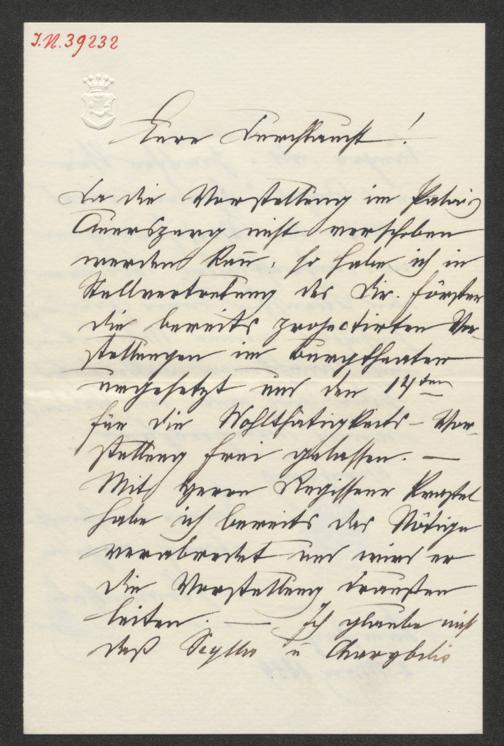 J.N. 39232
Eure Durchlaucht!
Da die Vorstellung im Palais
Auersperg nicht verschoben
werden kann, so habe ich in
Stellvertretung des Dir. Förster
die bereits projectirten Vor-
stellungen im Burgtheater
umgesetzt und den 14ten
für die Wohlthätigkeits-Vor-
stellung frei gelassen. —
Mit Herrn Regisseur
habe ich bereits das Nötige
verabredet und wird er
die Vorstellung draußen
leiten. — Ich glaube nicht
daß Scylla u Charybdis